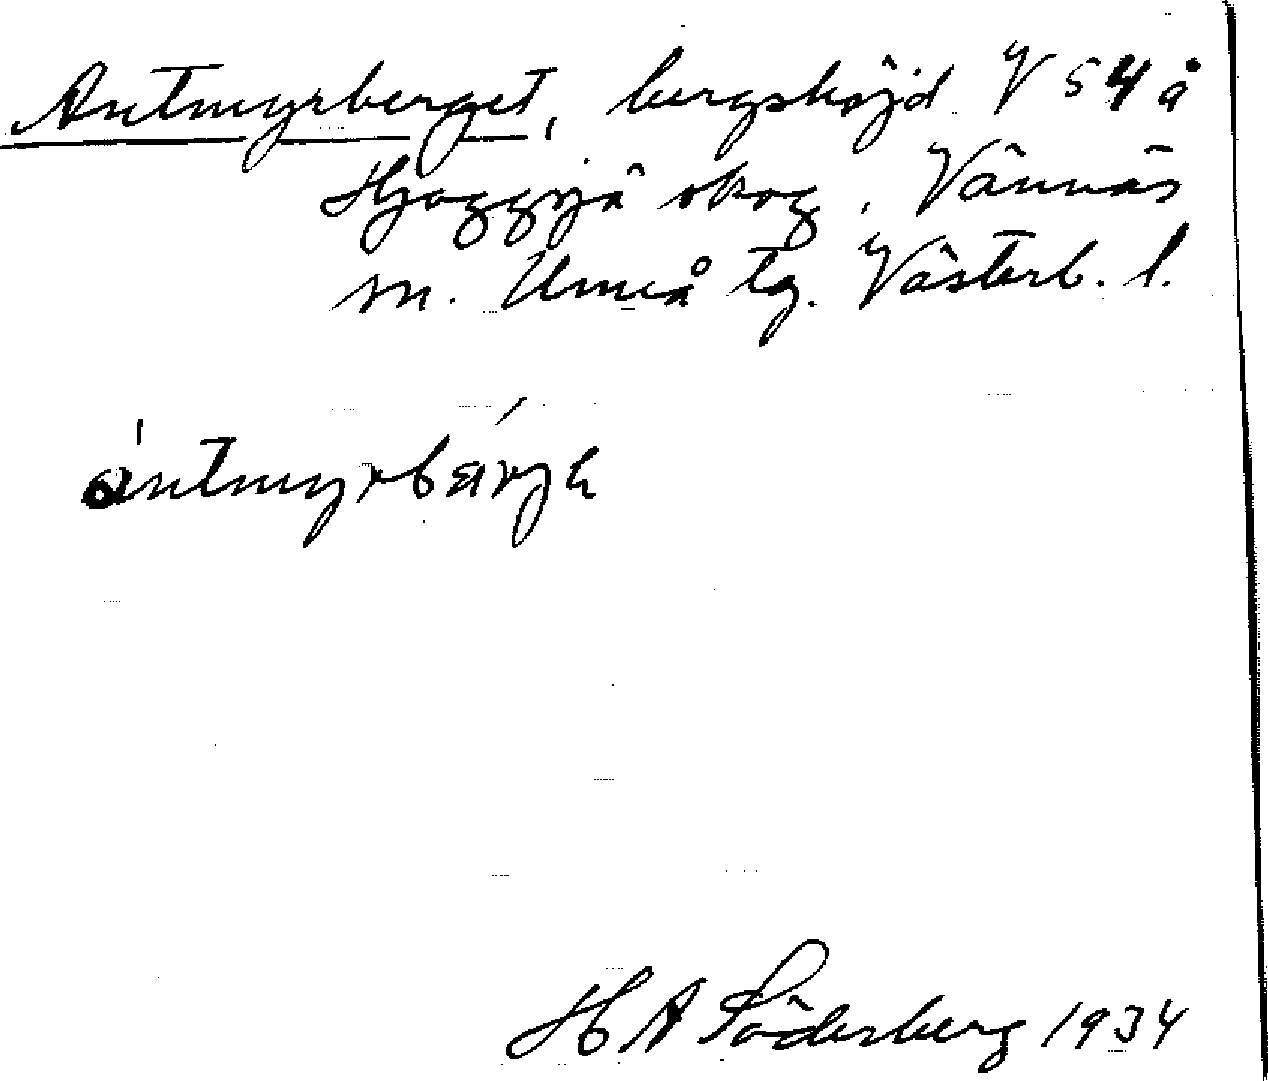 Antmyrberget, bergshöjd V 54 å
Hjoggsjö skog, Vännäs
sn. Umeå tg. Västerb. l.
ántmyrbärje
H A Söderberg 1934